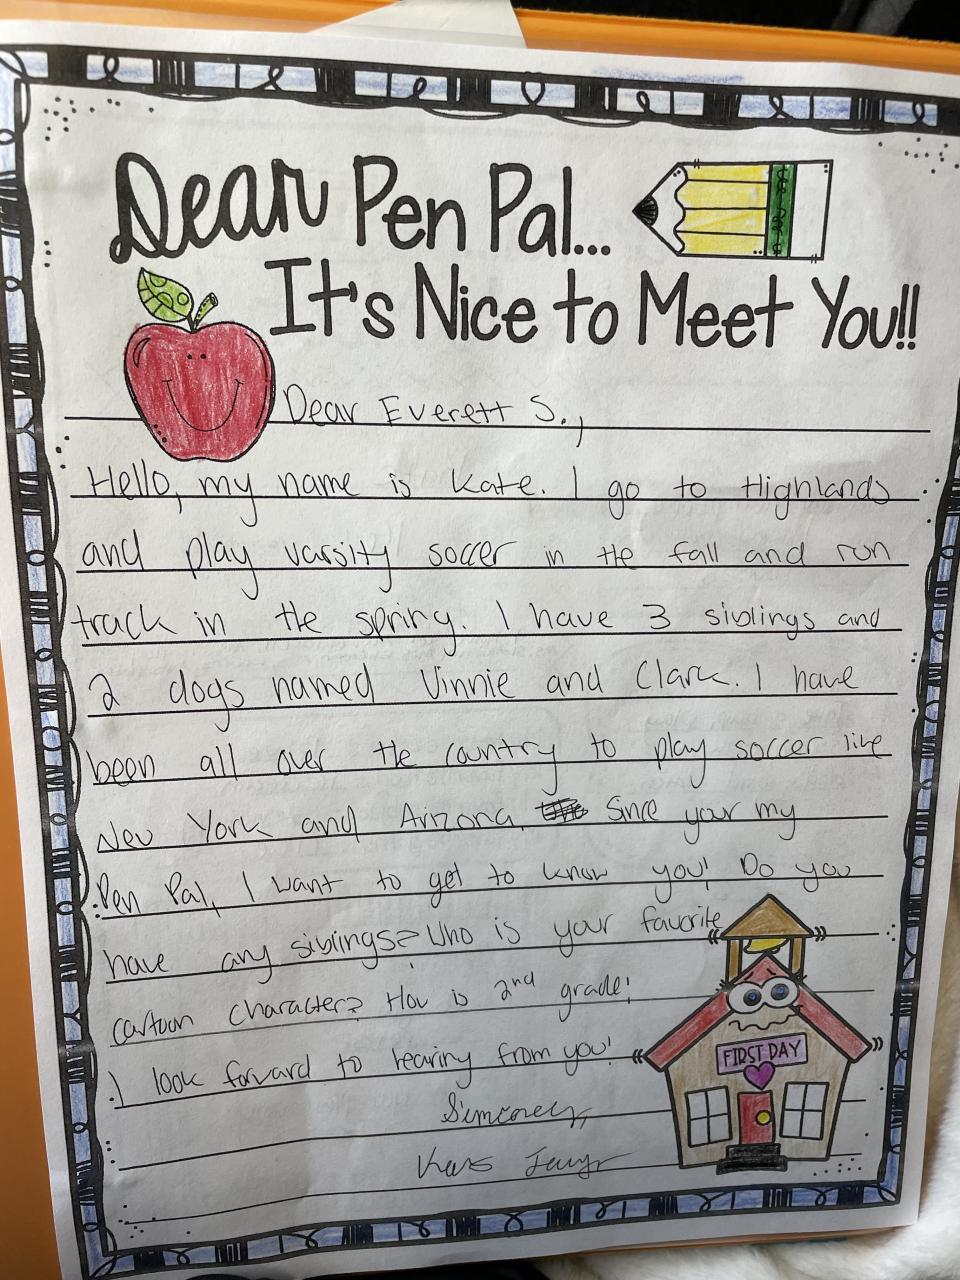 Dear Pen Pal...
It's Nice to Meet You!!
Dear Everett S.,
Hello, my name is Kate. I go to Highlands
and play varsity soccer in the fall and run
track in the spring. I have 3 siblings and
2 dogs named Vinnie and Clark. I have
been all over the country to play soccer like
New York and Arizona. Since your my
Pen Pal, I want to get to know you! Do you
have any siblings? Who is your favorite
cartoon character? How is 2nd grade!
I look forward to hearing from you!
Sincerely,
FIRST DAY